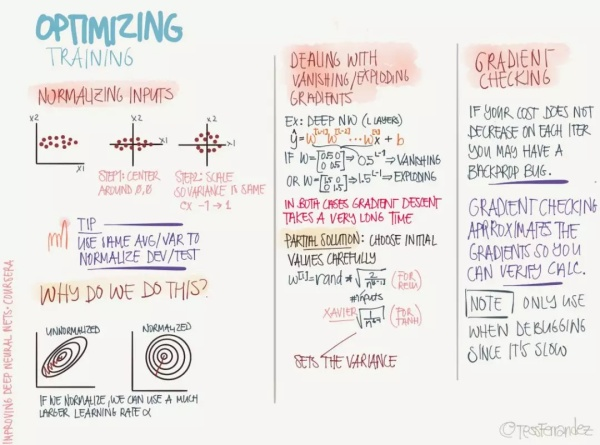 OPTIMIZING
TRAINING
NORMALIZING INPUTS
x2
x1
x2
x1
x2
x1
STEP1: CENTER
AROUND 0,0
STEP2: SCALE
SO VARIANCE IS SAME
EX -1 → 1
TIP
USE SAME AVG/VAR TO
NORMALIZE DEV/TEST
WHY DO WE DO THIS?
UNNORMALIZED
NORMALIZED
IF WE NORMALIZE, WE CAN USE A MUCH
LARGER LEARNING RATE α
DEALING WITH
VANISHING/EXPLODING
GRADIENTS
EX: DEEP NW (L LAYERS)
ŷ = W[L-1] W[L-2] ... W[1] x + b
IF W = [0.5 0 0 0.5] ⇒ 0.5^L-1 ⇒ VANISHING
OR W = [1.5 0 0 1.5] ⇒ 1.5^L-1 ⇒ EXPLODING
IN BOTH CASES GRADIENT DESCENT
TAKES A VERY LONG TIME
PARTIAL SOLUTION: CHOOSE INITIAL
VALUES CAREFULLY
W[l] = rand * √(2/n[l-1]) (FOR RELU)
#inputs
XAVIER √(1/n[l-1]) (FOR TANH)
SETS THE VARIANCE
GRADIENT
CHECKING
IF YOUR COST DOES NOT
DECREASE ON EACH ITER
YOU MAY HAVE A
BACKPROP BUG.
GRADIENT CHECKING
APPROXIMATES THE
GRADIENTS SO YOU
CAN VERIFY CALC.
NOTE ONLY USE
WHEN DEBUGGING
SINCE IT'S SLOW
IMPROVING DEEP NEURAL NETS - COURSERA
©TessFerrandez